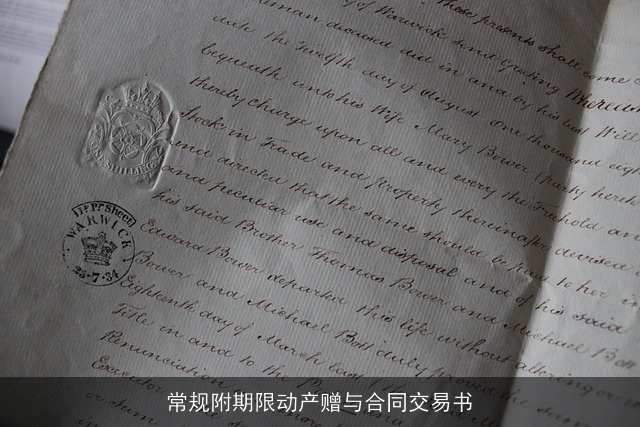 of Warwick send Greeting Whereas
deceased did in and by his last Will
date the Twelfth day of August One thousand eigh
bequeath unto his Wife Mary Bower (party here
thereby charge upon all and every the Freehold an
Stock in Trade and property thereinafter devised
and directed that the same should be paid to her
and peculiar use and disposal and of his said
his said Brother Thomas Bower and Michael Bott
Edward Bower departed this life without altering or
Bower and Michael Bott duly proved the
Eighteenth day of March last
Title in and to the
Renunciation
Executor
or sum
ONE SHILLING
WARWICK
23·7·34
常规附期限动产赠与合同交易书